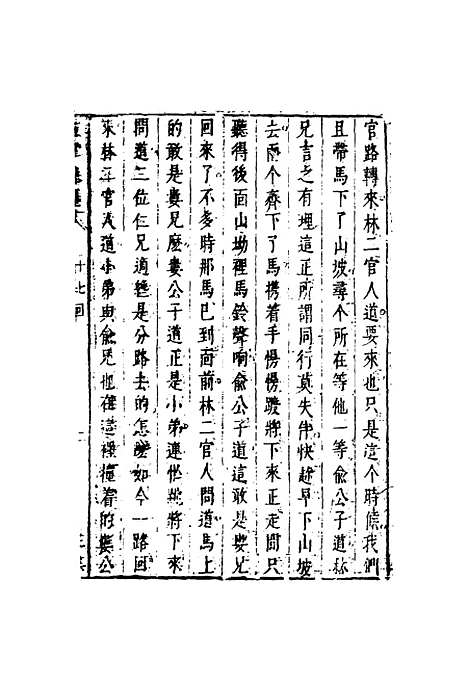 官路轉來林二官人道要來也只是這个時候我們
且帶馬下了山坡尋个所在等他一等俞公子道林
兄言之有理這正所謂同行莫失伴快趂早下山坡
去兩个齊下了馬携着手慢慢踱將下來正走間只
聽得後面山坳裡馬鈴聲响俞公子道這敢是婁兄
回來了不多時那馬已到面前林二官人問道馬上
的敢是婁兄麽婁公子道正是小弟連忙跳將下來
問道二位仁兄適纔是分路去的怎麽如今一路回
來林二官人道小弟與俞兄也在這裡撞着的婁公
十七回